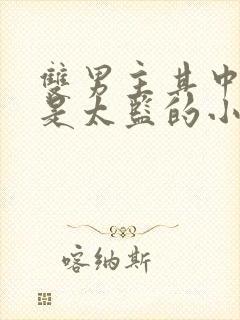 雙男主其中
是太監的小
喀納斯